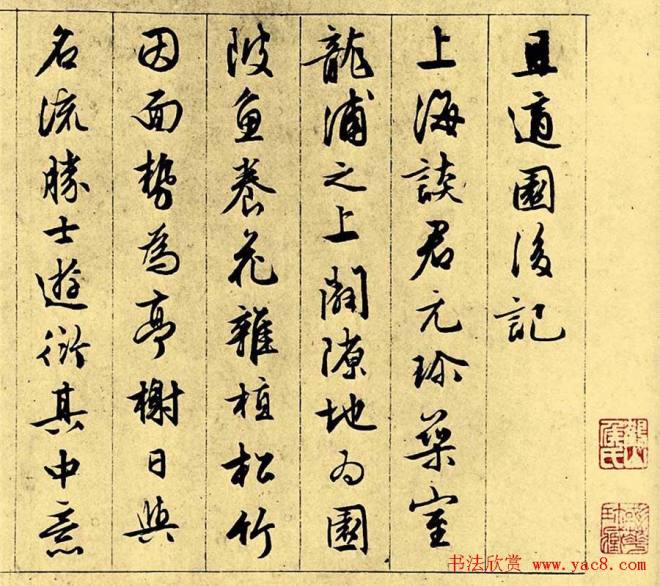 且適園後記
上海談君元珍築室
龍浦之上闢隙地为園
陂魚養花雜植松竹
因面勢為亭榭日與
名流勝士遊衍其中意
书法欣赏 www.yac8.com